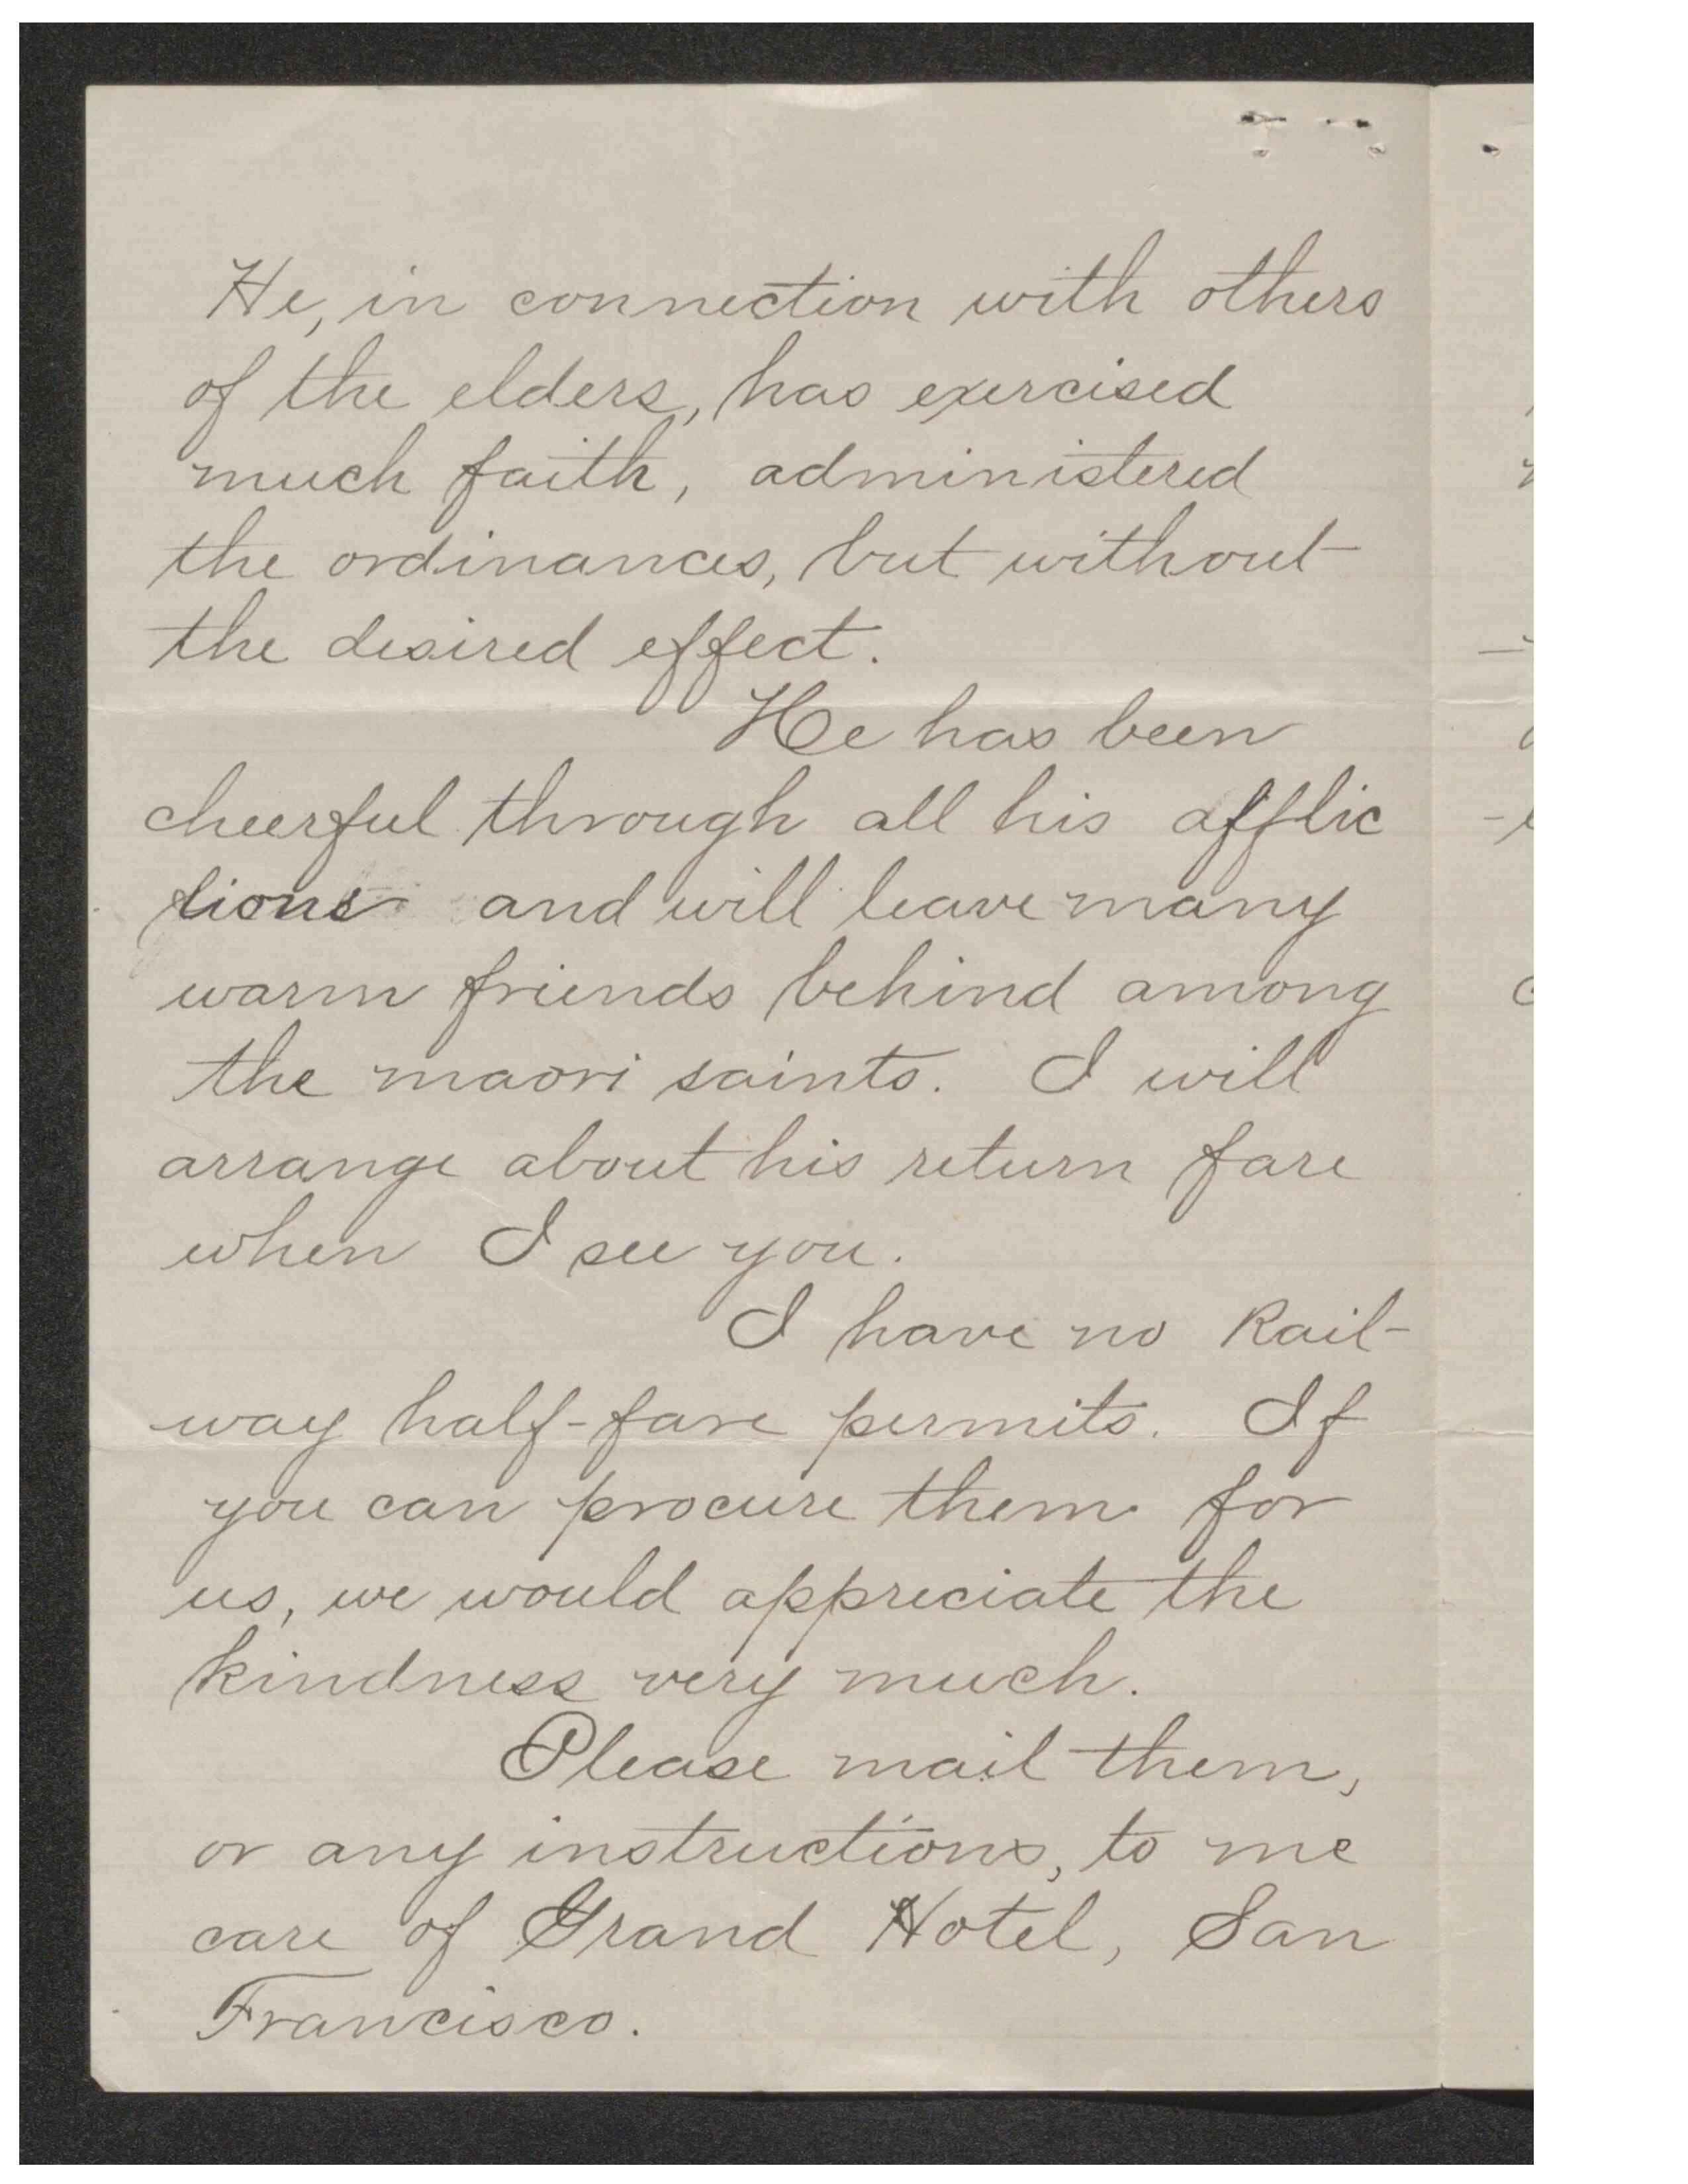 He, in connection with others
of the elders, has exercised
much faith, administered
the ordinances, but without
the desired effect.
He has been
cheerful through all his afflic
tions and will leave many
warm friends behind among
the maori saints. I will
arrange about his return fare
when I see you.
I have no Rail-
way half-fare permits. If
you can procure them for
us, we would appreciate the
kindness very much.
Please mail them,
or any instructions, to me
care of Grand Hotel, San
Francisco.